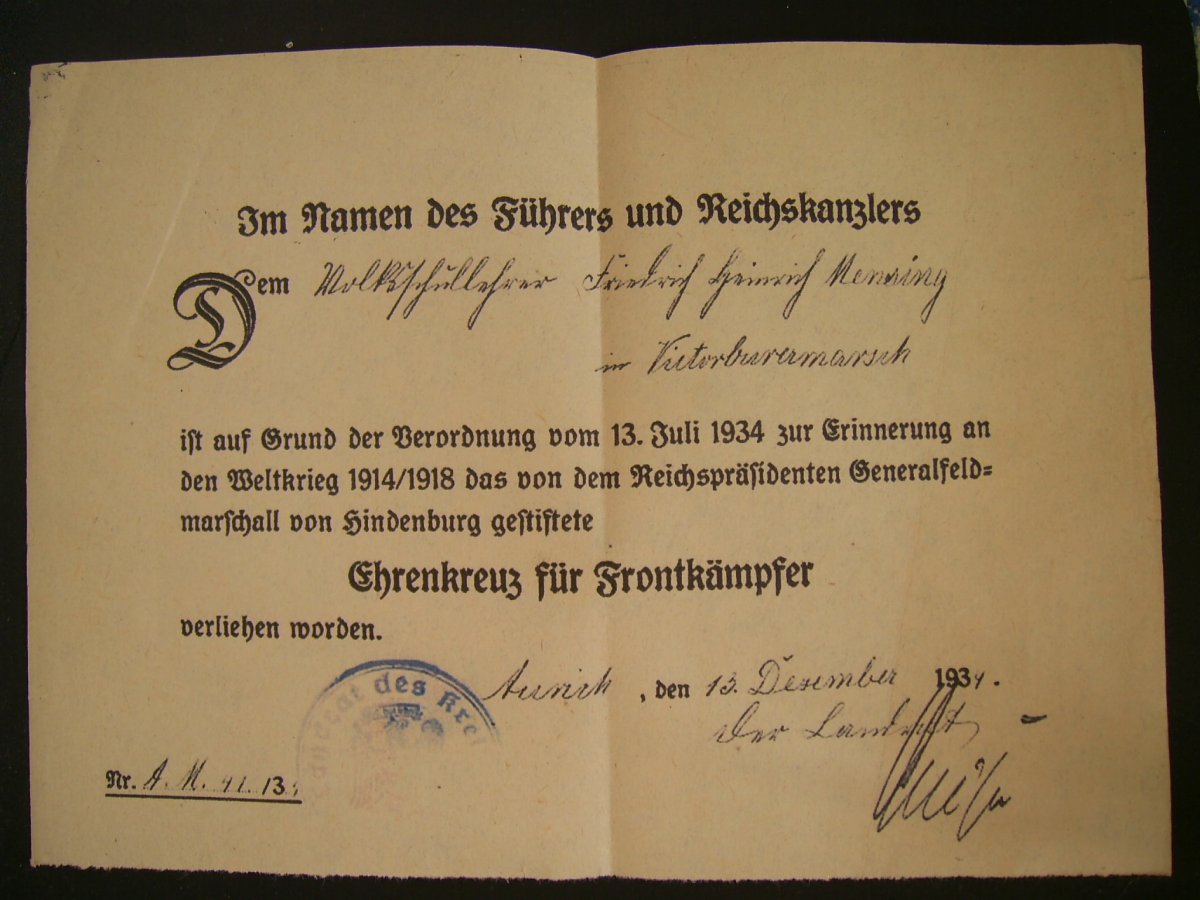 Im Namen des Führers und Reichskanzlers
Dem Volksschullehrer Friedrich Heinrich Mensing
in Victorburermarsch
ist auf Grund der Verordnung vom 13. Juli 1934 zur Erinnerung an
den Weltkrieg 1914/1918 das von dem Reichspräsidenten Generalfeld=
marschall von Hindenburg gestiftete
Ehrenkreuz für Frontkämpfer
verliehen worden.
Aurich, den 13. Desember 1934.
Der Landrat
Landrat des Krei
Nr. A. M. 41. 13